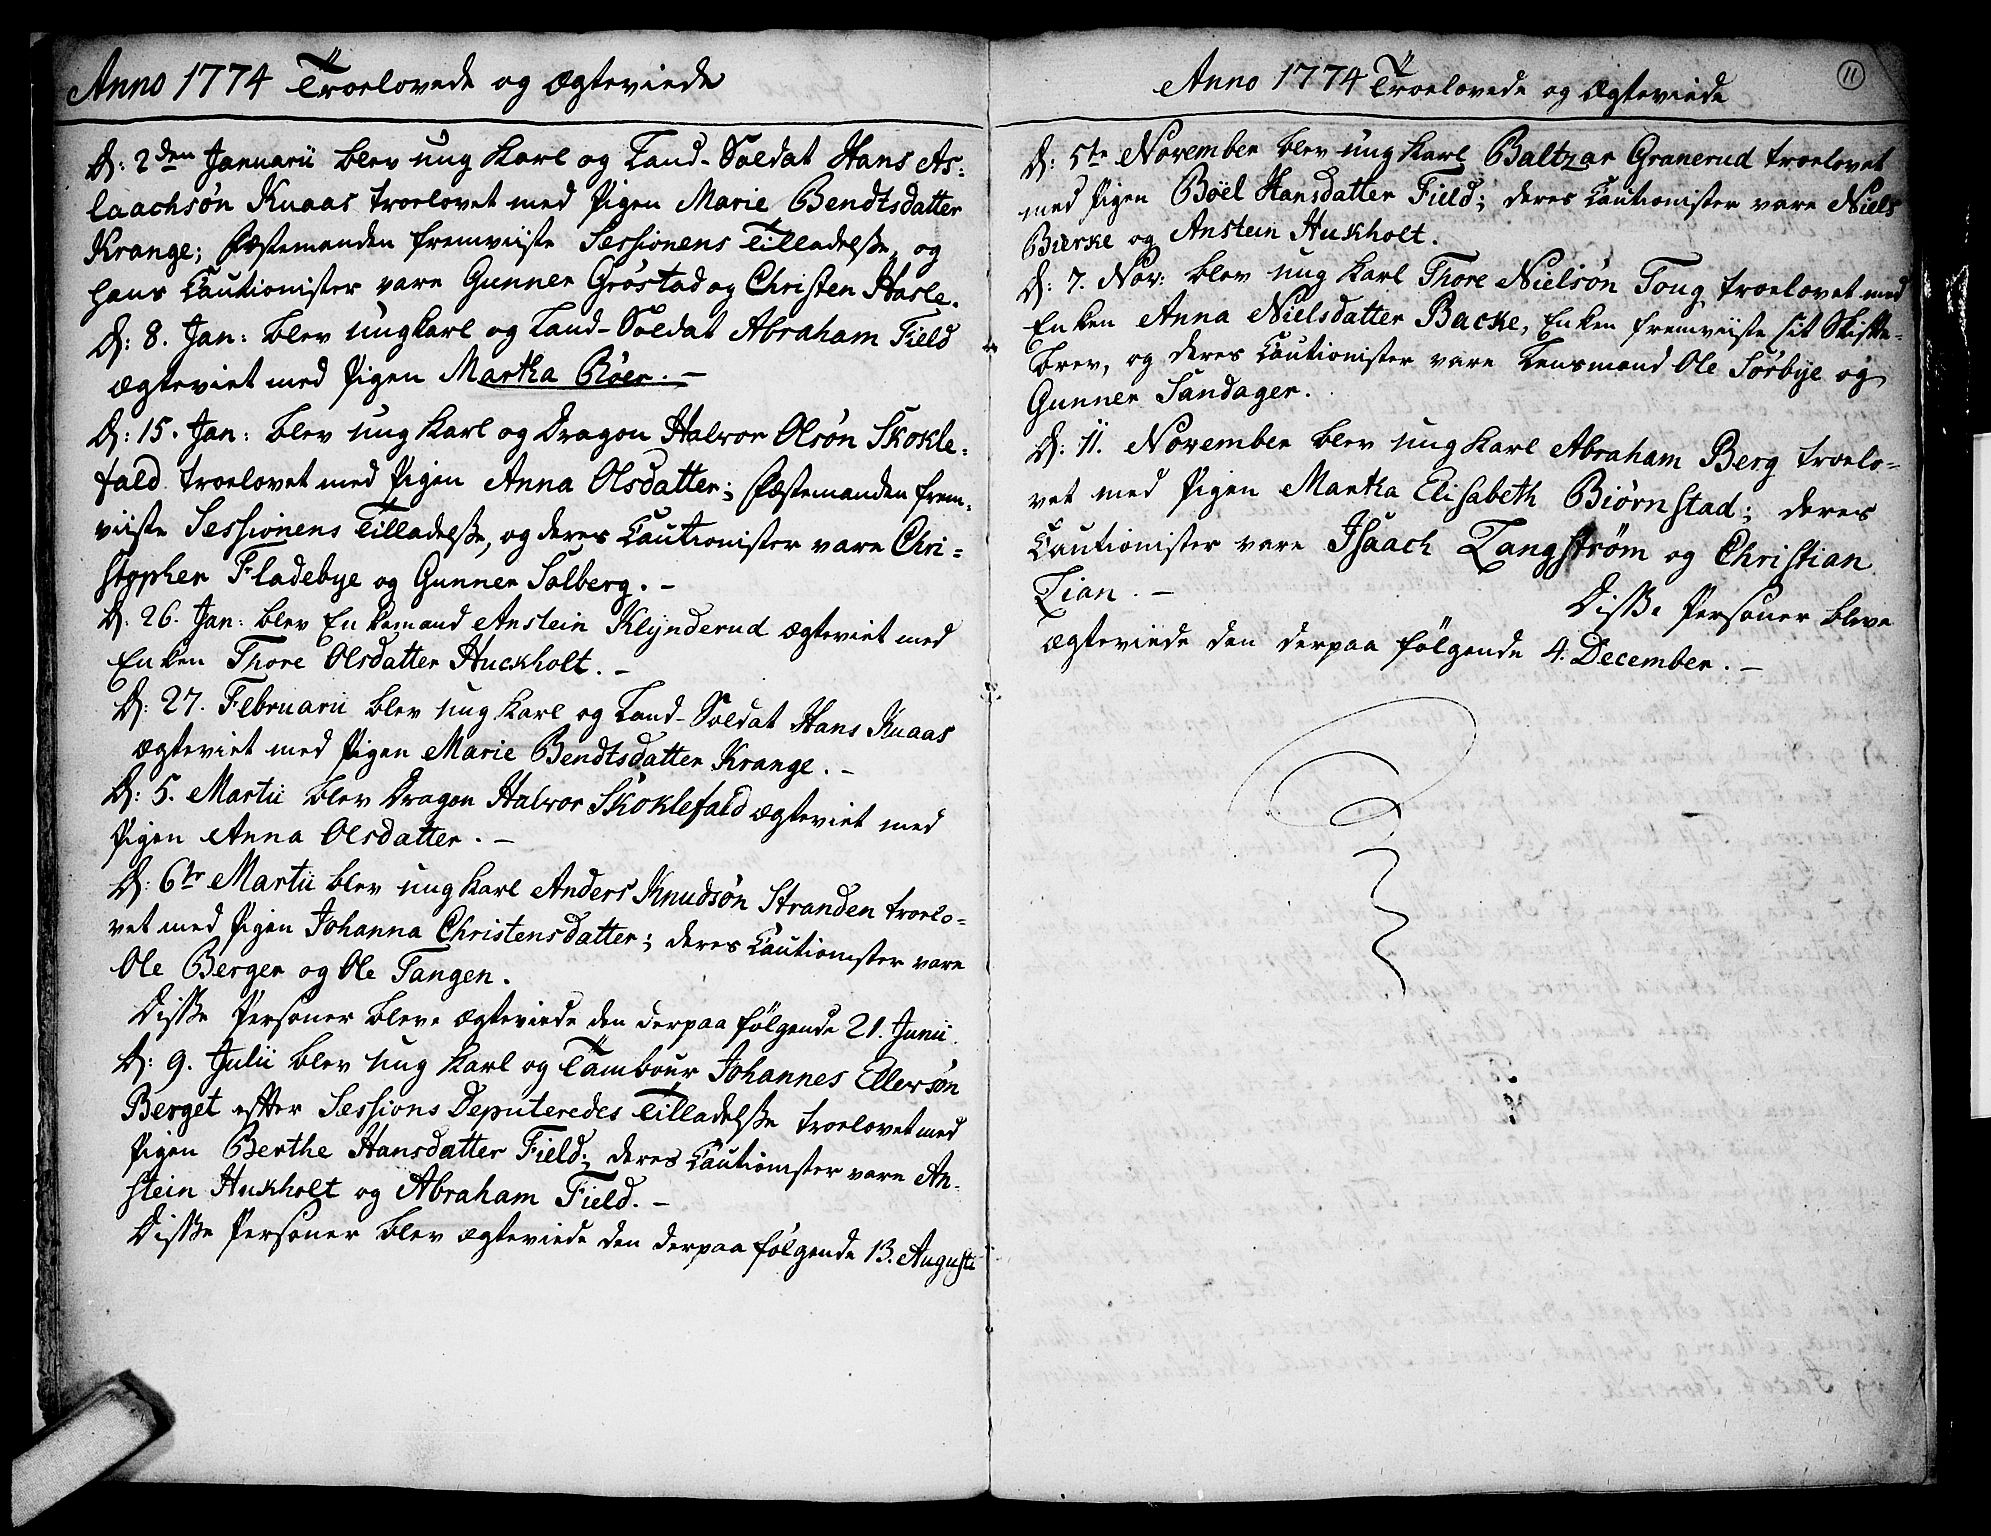 Anno 1774 Troelovede og Ægteviede
D: 2den Januarii blev ung Karl og Land-Soldat Hans As-
laachsøn Knaas troelovet med Pigen Marie Bendtsdatter
Krange; Fæstemanden fremviiste Sessionens Tilladelsse, og
hans Cautionister vare Gunner Grøstad og Christen Hasle.
D: 8. Jan: blev ung Karl og Land-Soldat Abraham Field
ægteviet med Pigen Martha Røer. -
D: 15. Jan: blev ung Karl og Dragon Halvor Olsøn Skokle-
fald troelovet med Pigen Anna Olsdatter; Fæstemanden frem-
viiste Sessionens Tilladelsse, og deres Cautionister vare Chri-
stopher Fladebye og Gunner Solberg. -
D: 26. Jan: blev Enkemand Anstein Klynderud ægteviet med
Enken Thore Olsdatter Huckholt. -
D: 27. Februarii blev ung Karl og Land-Soldat Hans Knaas
ægteviet med Pigen Marie Bendtsdatter Krange. -
D: 5. Martii blev Dragon Halvor Skoklefald ægteviet med
Pigen Anna Olsdatter. -
D: 6te Martii blev ung Karl Anders Knudsøn Stranden troelo-
vet med Pigen Johanna Christensdatter; deres Cautionister vare
Ole Berger og Ole Tangen.
Disse Personer bleve ægteviede den derpaa følgende 21. Junii.
D: 9. Julii blev ung Karl og Tambour Johannes Ellevsøn
Berget efter Sessions Deputeredes Tilladelsse troelovet med
Pigen Berthe Hansdatter Field; deres Cautionister vare An-
stein Hukholt og Abraham Field. -
Disse Personer blev ægteviede den derpaa følgende 13. Augusti
Anno 1774 Troelovede og Ægteviede
11
D: 5te November blev ung Karl Baltzar Granerud troelovet
med Pigen Boël Hansdatter Field; deres Cautionister vare Niels
Bierke og Anstein Hukholt.
D: 7. Nov: blev ung Karl Thore Nielsøn Toug troelovet med
Enken Anna Nielsdatter Backe, Enken fremviiste sit Skifte-
brev, og deres Cautionister vare Lensmand Ole Sørbye og
Gunner Sandager.
D: 11. November blev ung Karl Abraham Berg troelo-
vet med Pigen Martha Elisabeth Biørnstad; deres
Cautionister vare Isaach Langstrøm og Christian
Lian. -
Disse Personer bleve
ægteviede den derpaa følgende 4. December. -